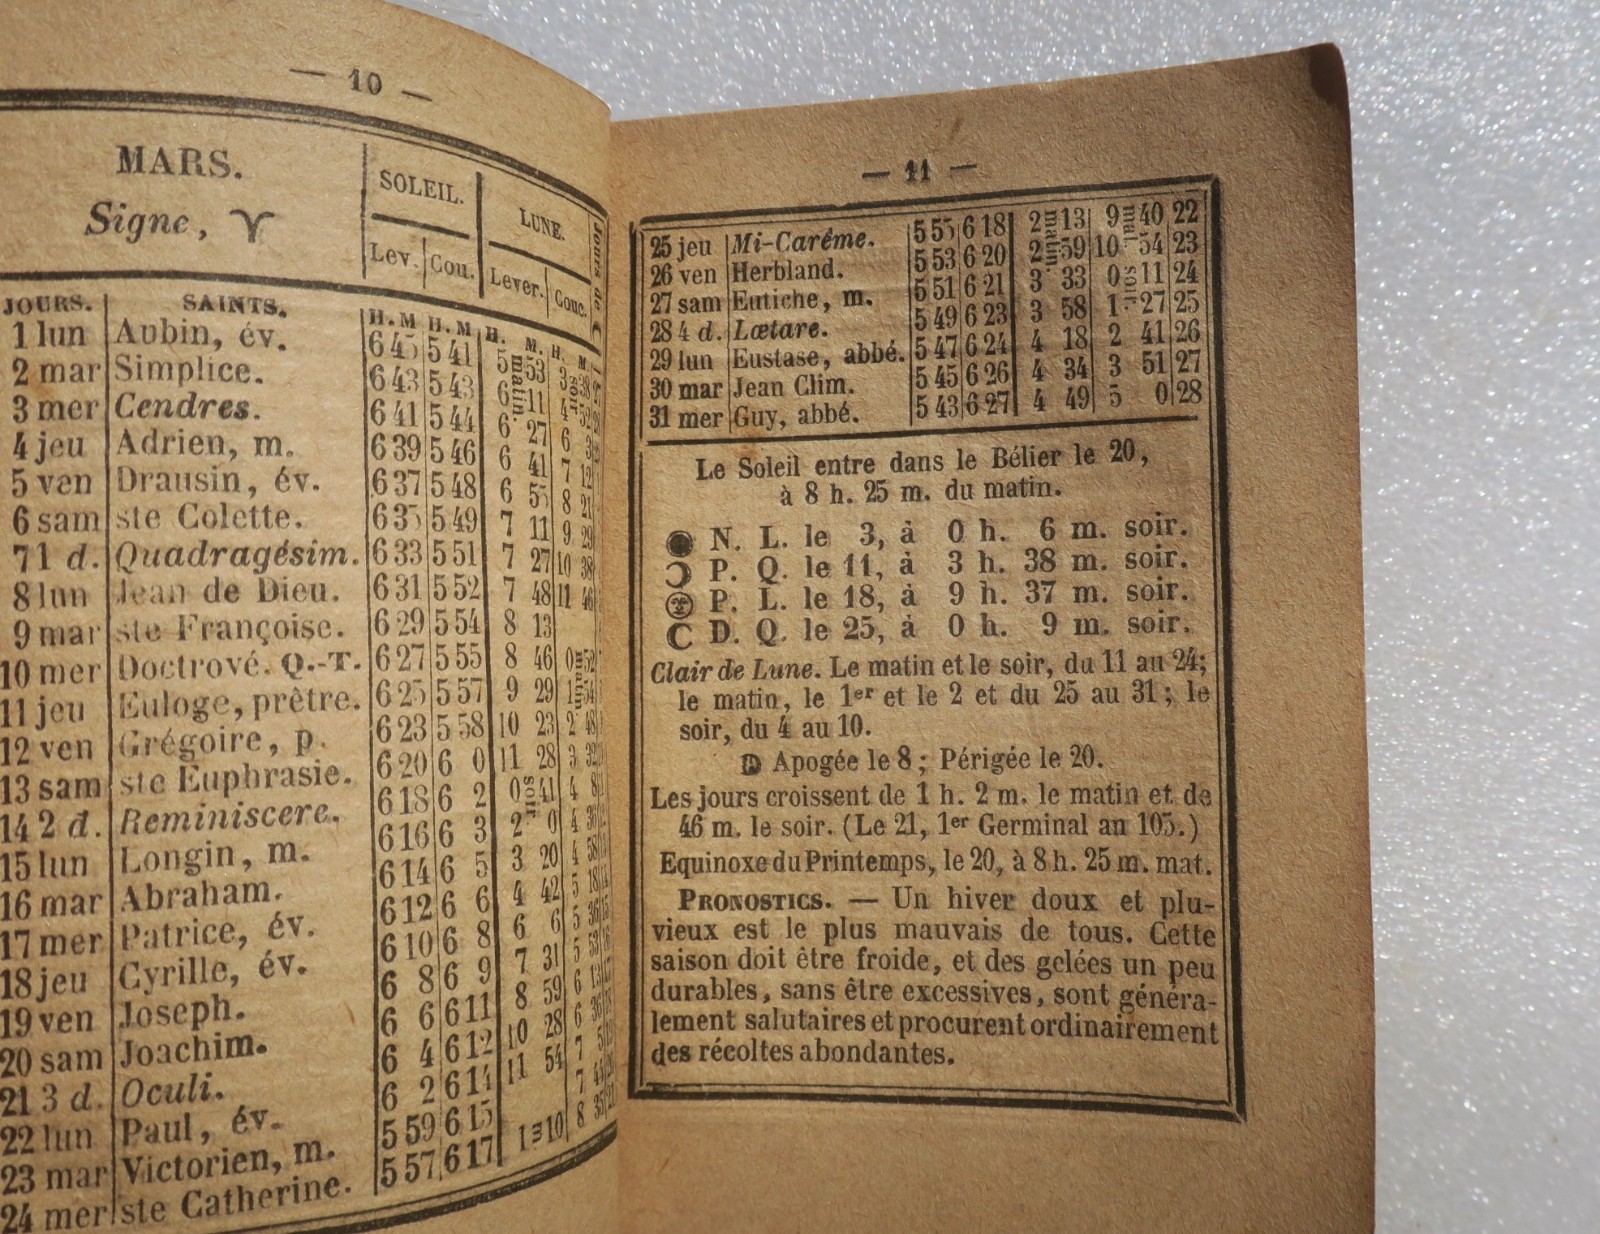 — 10 —
MARS.
Signe, ♈
SOLEIL.
LUNE.
Jours de
Lev. Cou. Lever. Couc.
JOURS. SAINTS. H. M H. M H. M. H. M
1 lun Aubin, év. 6 45 5 41 5 53 3
2 mar Simplice. 6 43 5 43 6 11 4
3 mer Cendres. 6 41 5 44 6 27 6
4 jeu Adrien, m. 6 39 5 46 6 41 7 12
5 ven Drausin, év. 6 37 5 48 6 55 8 21
6 sam ste Colette. 6 35 5 49 7 11 9 29
7 1 d. Quadragésim. 6 33 5 51 7 27 10 38
8 lun Jean de Dieu. 6 31 5 52 7 48 11 46
9 mar ste Françoise. 6 29 5 54 8 13
10 mer Doctrové. Q.-T. 6 27 5 55 8 46 0 52
11 jeu Euloge, prêtre. 6 25 5 57 9 29 1 54
12 ven Grégoire, p. 6 23 5 58 10 23 2 48
13 sam ste Euphrasie. 6 20 6 0 11 28 3 32
14 2 d. Reminiscere. 6 18 6 2 0 41 4 8
15 lun Longin, m. 6 16 6 3 2 0 4
16 mar Abraham. 6 14 6 5 3 20 4 58
17 mer Patrice, év. 6 12 6 6 4 42 5 18
18 jeu Cyrille, év. 6 10 6 8 6 6 5 36
19 ven Joseph. 6 8 6 9 7 31 5 53
20 sam Joachim. 6 6 6 11 8 59 6 13
21 3 d. Oculi. 6 4 6 12 10 28 6 36
22 lun Paul, év. 6 2 6 14 11 54 7
23 mar Victorien, m. 5 59 6 15 7
24 mer ste Catherine. 5 57 6 17 1 10 8 35
matin. soir
matin
soir.
— 11 —
25 jeu Mi-Carême. 5 55 6 18 2 13 9 40 22
26 ven Herbland. 5 53 6 20 2 59 10 54 23
27 sam Eutiche, m. 5 51 6 21 3 33 0 11 24
28 4 d. Lœtare. 5 49 6 23 3 58 1 27 25
29 lun Eustase, abbé. 5 47 6 24 4 18 2 41 26
30 mar Jean Clim. 5 45 6 26 4 34 3 51 27
31 mer Guy, abbé. 5 43 6 27 4 49 5 0 28
matin. mat. soir.
Le Soleil entre dans le Bélier le 20,
à 8 h. 25 m. du matin.
N. L. le 3, à 0 h. 6 m. soir.
P. Q. le 11, à 3 h. 38 m. soir.
P. L. le 18, à 9 h. 37 m. soir.
D. Q. le 25, à 0 h. 9 m. soir.
Clair de Lune. Le matin et le soir, du 11 au 24;
le matin, le 1er et le 2 et du 25 au 31; le
soir, du 4 au 10.
Apogée le 8; Périgée le 20.
Les jours croissent de 1 h. 2 m. le matin et de
46 m. le soir. (Le 21, 1er Germinal an 105.)
Equinoxe du Printemps, le 20, à 8 h. 25 m. mat.
PRONOSTICS. — Un hiver doux et plu-
vieux est le plus mauvais de tous. Cette
saison doit être froide, et des gelées un peu
durables, sans être excessives, sont généra-
lement salutaires et procurent ordinairement
des récoltes abondantes.